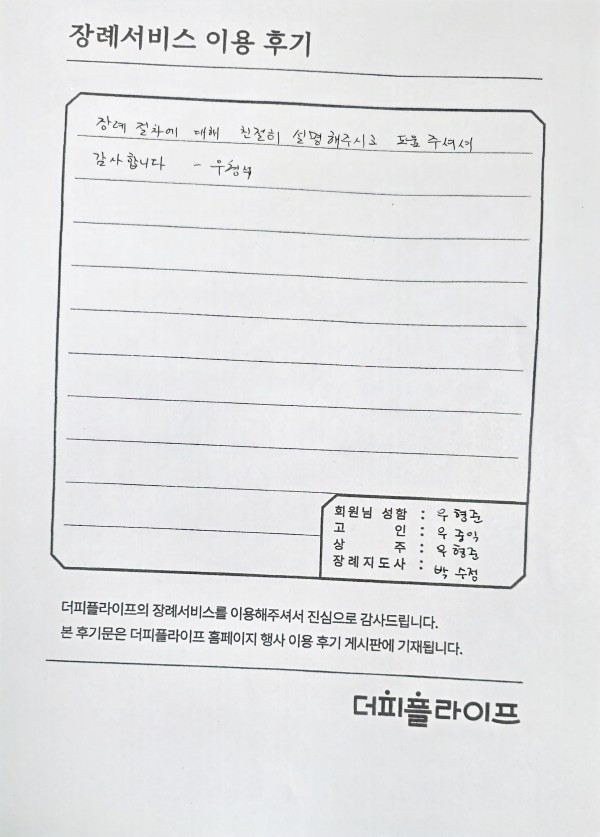 장례서비스 이용 후기
장례 절차에 대해 친절히 설명해주시고 도움 주셔서
감사합니다 - 우형석
회원님 성함 : 우형준
고 인 : 우종익
상 주 : 우형준
장례지도사 : 박수정
더피플라이프의 장례서비스를 이용해주셔서 진심으로 감사드립니다.
본 후기문은 더피플라이프 홈페이지 행사 이용 후기 게시판에 기재됩니다.
더피플라이프